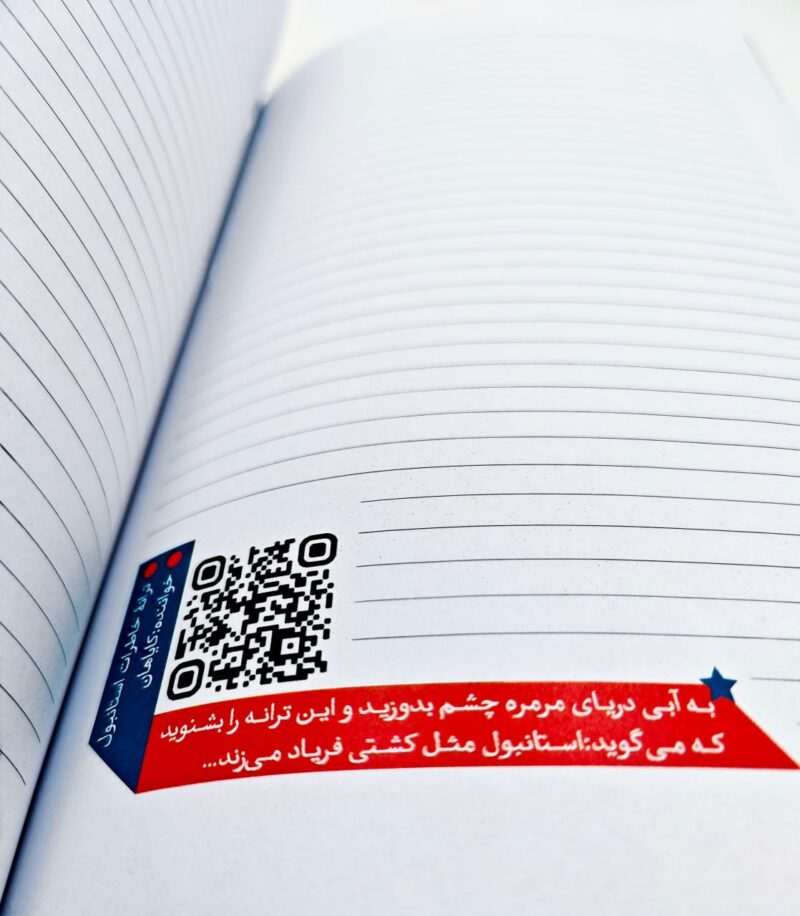 ترانهٔ خاطرات استانبول
خواننده:کایاهان
به آبی دریای مرمره چشم بدوزید و این ترانه را بشنوید
که می‌گوید:استانبول مثل کشتی فریاد می‌زند...